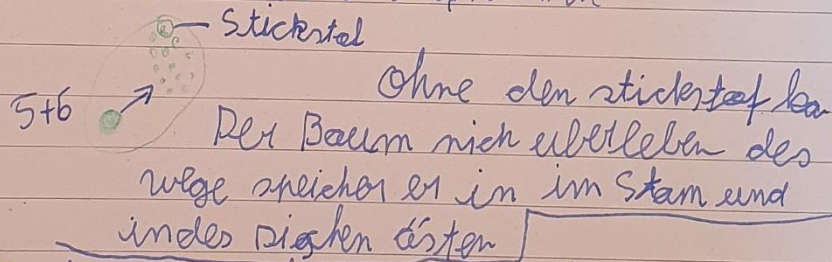 Stickstof
Ohne den stickstof kan
5+6
Der Baum nich uberleben des
wege speicher er in im Stam und
in des ästen